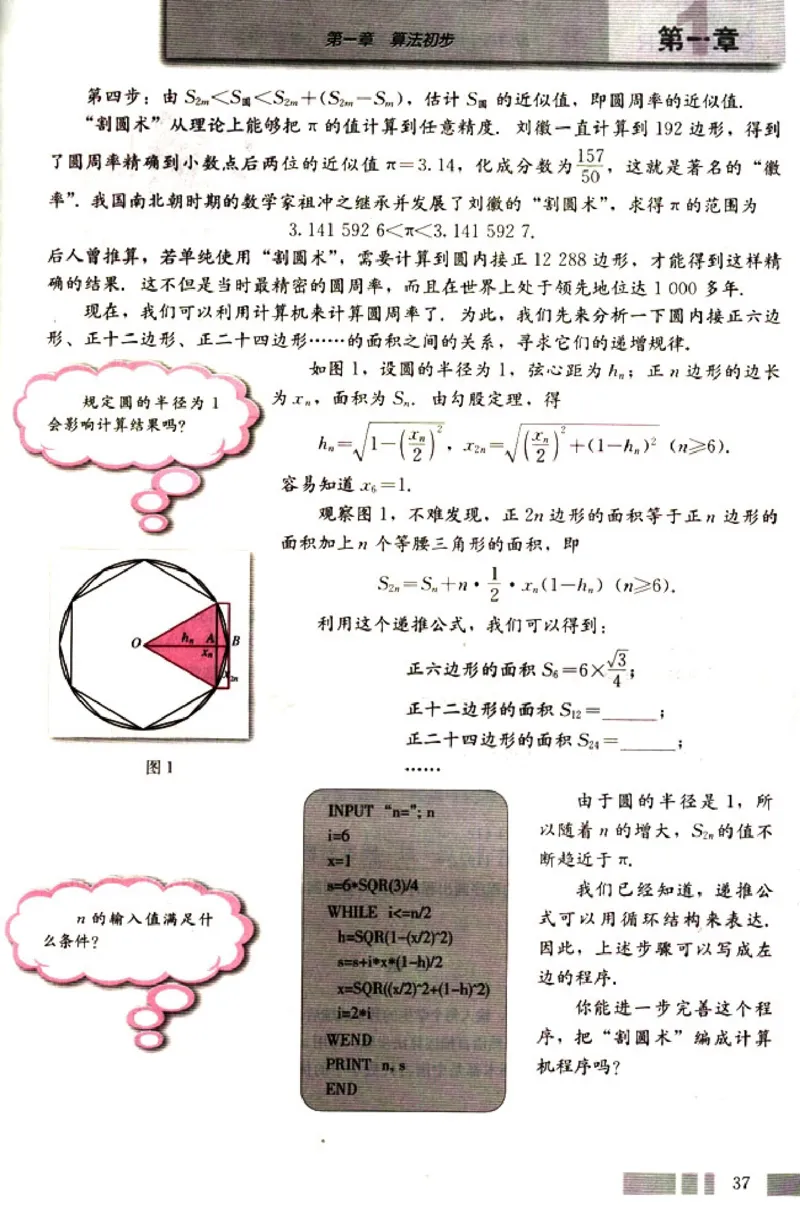 第一章 算法初步
第一章
第四步：由 S₂ₘ<S圆<S₂ₘ+(S₂ₘ−Sₘ)，估计 S圆 的近似值，即圆周率的近似值.
“割圆术”从理论上能够把 π 的值计算到任意精度. 刘徽一直计算到 192 边形，得到
了圆周率精确到小数点后两位的近似值 π=3.14，化成分数为 157/50，这就是著名的“徽
率”. 我国南北朝时期的数学家祖冲之继承并发展了刘徽的“割圆术”，求得 π 的范围为
3.141 592 6<π<3.141 592 7.
后人曾推算，若单纯使用“割圆术”，需要计算到圆内接正 12 288 边形，才能得到这样精
确的结果. 这不但是当时最精密的圆周率，而且在世界上处于领先地位达 1 000 多年.
现在，我们可以利用计算机来计算圆周率了. 为此，我们先来分析一下圆内接正六边
形、正十二边形、正二十四边形……的面积之间的关系，寻求它们的递增规律.
规定圆的半径为 1
会影响计算结果吗？
如图 1，设圆的半径为 1，弦心距为 hₙ；正 n 边形的边长
为 xₙ，面积为 Sₙ. 由勾股定理，得
hₙ=√(1−(xₙ/2)²)，x₂ₙ=√((xₙ/2)²+(1−hₙ)²) (n≥6).
容易知道 x₆=1.
观察图 1，不难发现，正 2n 边形的面积等于正 n 边形的
面积加上 n 个等腰三角形的面积，即
S₂ₙ=Sₙ+n·1/2·xₙ(1−hₙ) (n≥6).
利用这个递推公式，我们可以得到：
正六边形的面积 S₆=6×√3/4；
正十二边形的面积 S₁₂=______；
正二十四边形的面积 S₂₄=______；
……
O hₙ A B
xₙ
x₂ₙ
图 1
INPUT “n=”; n
i=6
x=1
s=6*SQR(3)/4
WHILE i<=n/2
h=SQR(1-(x/2)^2)
s=s+i*x*(1-h)/2
x=SQR((x/2)^2+(1-h)^2)
i=2*i
WEND
PRINT n, s
END
由于圆的半径是 1，所
以随着 n 的增大，S₂ₙ的值不
断趋近于 π.
我们已经知道，递推公
式可以用循环结构来表达.
因此，上述步骤可以写成左
边的程序.
你能进一步完善这个程
序，把“割圆术”编成计算
机程序吗？
n 的输入值满足什
么条件？
37